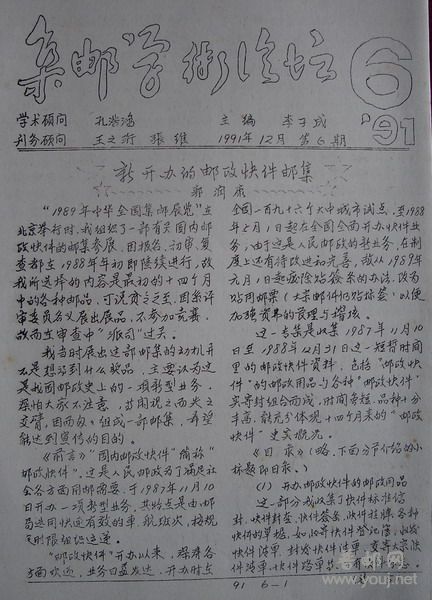 集邮学术论坛 6
'91
学术顾问 孔荣潘 主编 李子成
刊务顾问 王之衍 张维 1991年12月 第6期
新开办的邮政快件邮集
郭润康
"1989年中华全国集邮展览"在
北京举行时,我组织了一部有关国内邮
政快件的邮集参展。因报名、初审、复
查都在1988年年初即陆续进行,故
我所选择的内容是最初的十四个月
中的各种邮品,可说贫乏之至,因系评
审委员名义展出展品,不参加竞赛,
故而在审查中"派司"过关。
我当时展出这部邮集的动机并
不是想得到什么奖品,主要认为这
是我国邮政史上的一项新型业务,
恐怕大家不注意,若闲视之而失之
交臂,因而匆匆组成一部邮集,希望
能达到宣传的目的。
《前言》"国内邮政快件"简称"
邮政快件",这是人民邮政为了满足社
会各方面用邮需要,于1987年11月10
日开办一项新型业务,其特点是由邮
局选用快速有效的车、航班次、按规
定时限组织运递。
"邮政快件"开办以来,深得各
方面欢迎,业务日益发达,开办时在
全国一百九十六个大中城市试点,至1988
年5月1日起在全国全面开办快件业
务,由于这是人民邮政的新业务,在制
度上还有待改进和完善,故从1989年
元月1日起废除贴签条的办法,改为
贴用邮票(大宗邮件仍贴标签)以便
加强资费的管理与增强。
这一专集是收集1987年11月10
日至1988年12月31日这一短暂时间
里的邮政快件资料,包括"邮政快
件"的邮政用品与各种"邮政快件"
实寄封组合而成,时间虽短,品种十分
丰富,能充分体现十四个月来的"邮政
快件"史实概况。
《目录》(略,下面分节介绍的小
标题即目录。)
(1) 开办邮政快件的邮政用品
这一部分我收集了快件标准信
封、快件封套、快件签条、快件挂牌、各种
快件的单据,如收寄快件登记簿、收发
快件清单、封发快件清单、
91 6-1
集邮网
www.youj.net